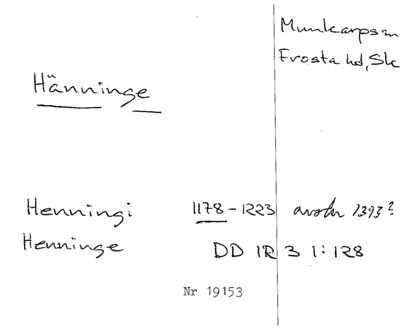 Munkarps sn
Frosta hd, Sk
Hänninge
Henningi 1178-1223 avskr 1393?
Henninge DD 1R 3 1:128
Nr 19153